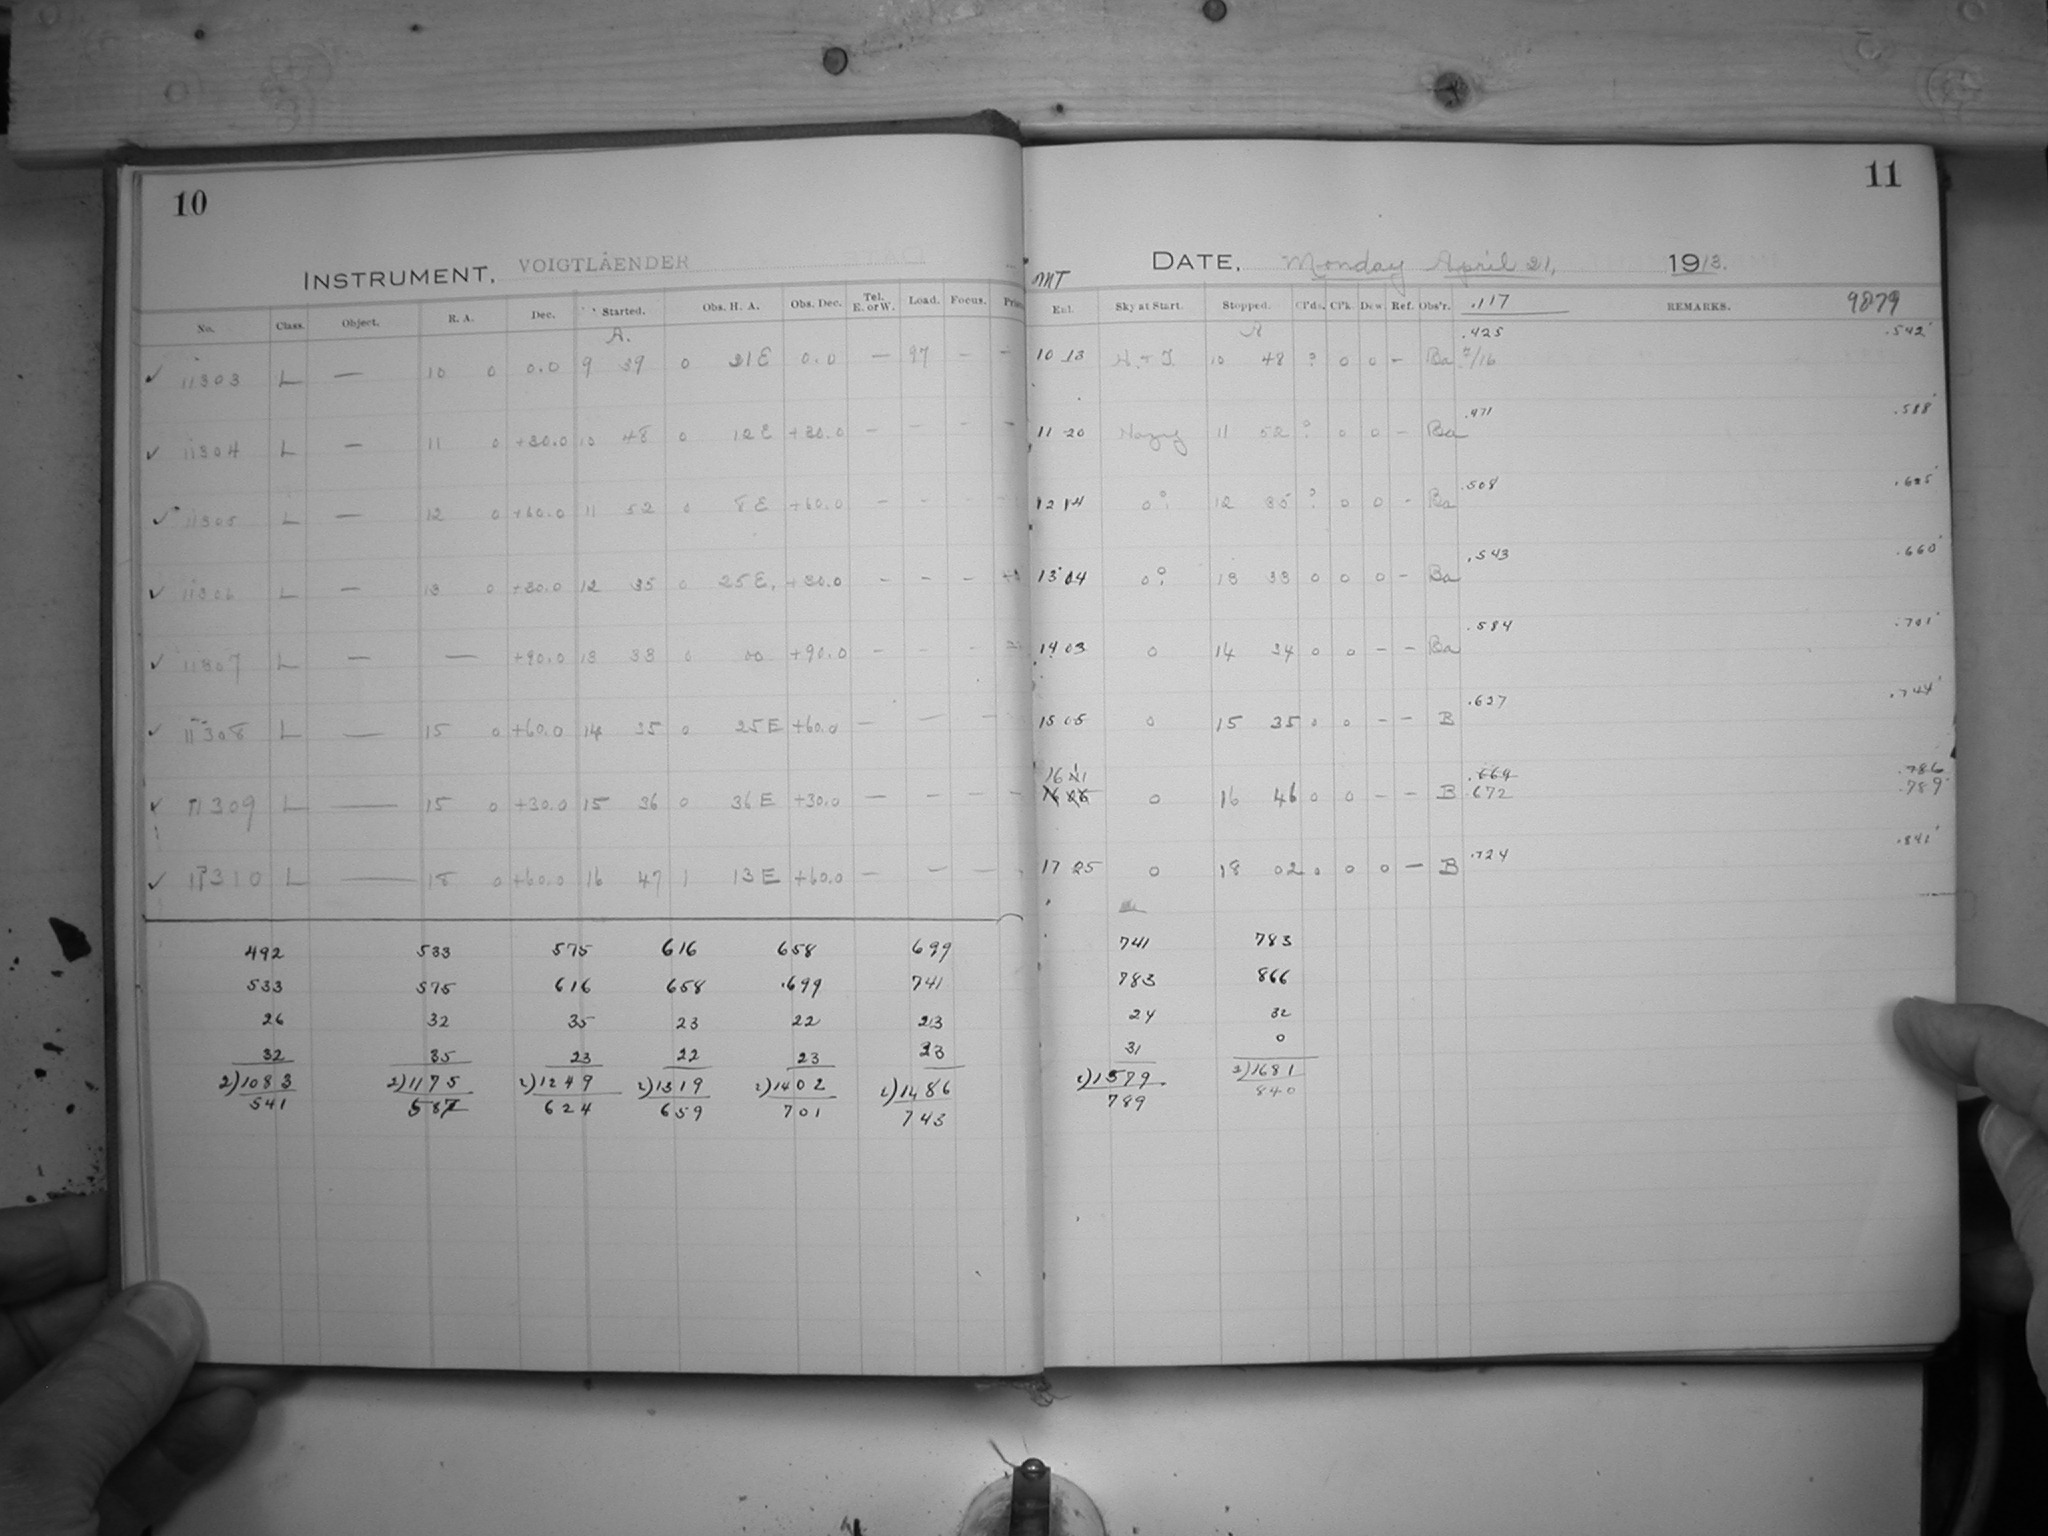 10
INSTRUMENT, VOIGTLÄENDER
No. Class. Object. R. A. Dec. Started. Obs. H. A. Obs. Dec. Tel. E. or W. Load. Focus.
A.
✓ 11303 L — 10 0 0.0 9 39 0 21 E 0.0 — 97 — —
✓ 11304 L — 11 0 +30.0 10 48 0 12 E +30.0 — — — —
✓ 11305 L — 12 0 +60.0 11 52 0 8 E +60.0 — — —
✓ 11306 L — 13 0 +30.0 12 35 0 25 E. +30.0 — — —
✓ 11307 L — — +90.0 13 33 0 00 +90.0 — — —
✓ 11308 L — 15 0 +60.0 14 35 0 25 E +60.0 — — —
✓ 11309 L — 15 0 +30.0 15 36 0 36 E +30.0 — — — —
✓ 11310 L — 18 0 +60.0 16 47 1 13 E +60.0 — — —
492 533 575 616 658 699
533 575 616 658 .699 741
26 32 35 23 22 23
32 35 23 22 23 23
2)1083 2)1175 2)1249 2)1319 2)1402 2)1486
541 587 624 659 701 743
11
DATE, Monday April 21, 1913.
Exl. Sky at Start. Stopped. Cl'ds. Cl'k. Dew. Ref. Obs'r. .117 REMARKS. 9879
A
.425 .542
10 13 H. + I. 10 48 ? 0 0 — Ba 7/16
.471 .588
11 20 Hazy 11 52 ? 0 0 — Ba
.508 .625
12 14 0? 12 35 ? 0 0 — Ba
.543 .660
13 04 0? 13 33 0 0 0 — Ba
.584 .701
14 03 0 14 34 0 0 — — Ba
.627 .744
15 05 0 15 35 0 0 — — B
16 11 .669 .786
16 06 0 16 46 0 0 — — B .672 .789
.724 .841
17 25 0 18 02 0 0 0 — B
741 783
783 866
24 32
31 0
2)1579 2)1681
789 840